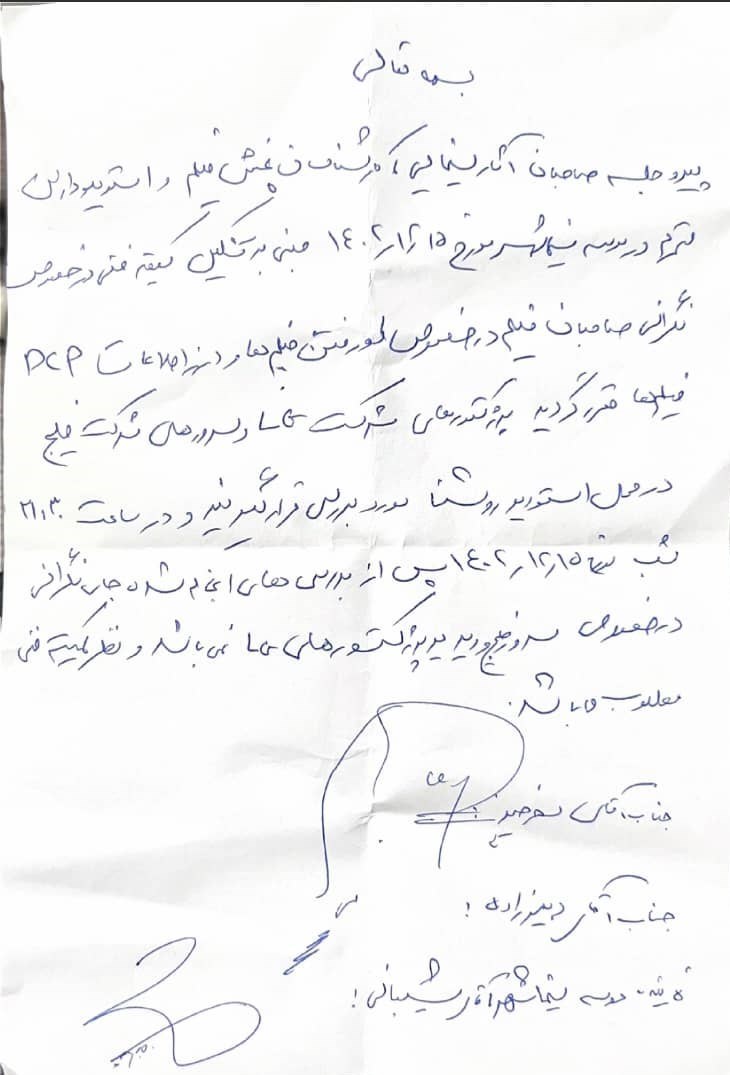 بسمه تعالی
پیرو جلسه صاحبان آثار سینمایی با کارشناسان پخش فیلم و استودیو دارای
محترم در موسسه سینماشهر مورخ ۱۴۰۲/۱۲/۱۵ مبنی بر تشکیل کمیته فنی در خصوص
نگرانی صاحبان فیلم در خصوص لو رفتن فیلم‌ها و درز اطلاعات DCP
فیلم‌ها مقرر گردید پروژکتورهای شرکت سما و سرورهای شرکت خلیج
در محل استودیو روشنا مورد بررسی قرار گیرند و در ساعت ۲۱:۳۰
شب ۱۴۰۲/۱۲/۱۵ پس از بررسی های انجام شده جای نگرانی
در خصوص سرور خلیج پروژکتورهای سما نمی باشد و نظر کمیته فنی
مطلوب می باشد.
جناب آقای
جناب آقای دبیرزاده :
موسسه سینماشهر آقای شیبانی :